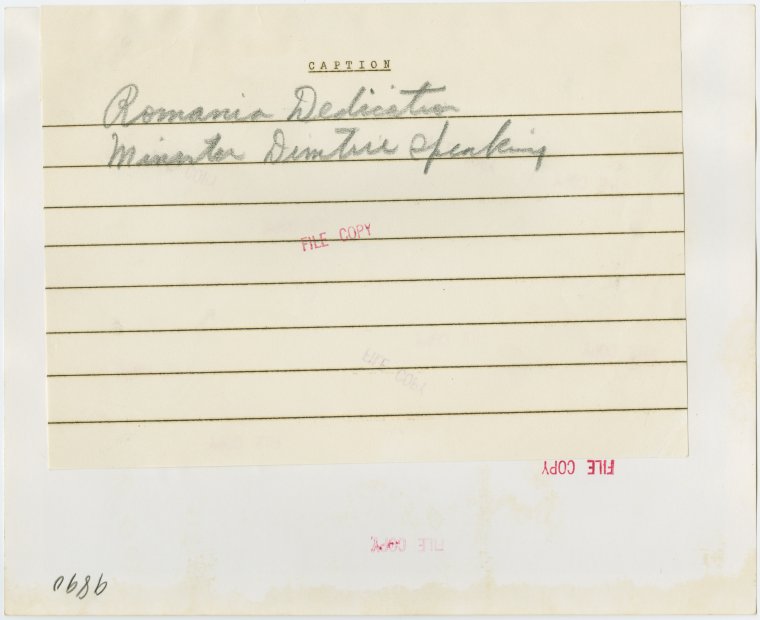 CAPTION
Romania Dedication
Minister Dimtrie Speaking
FILE COPY
FILE COPY
FILE COPY
FILE COPY